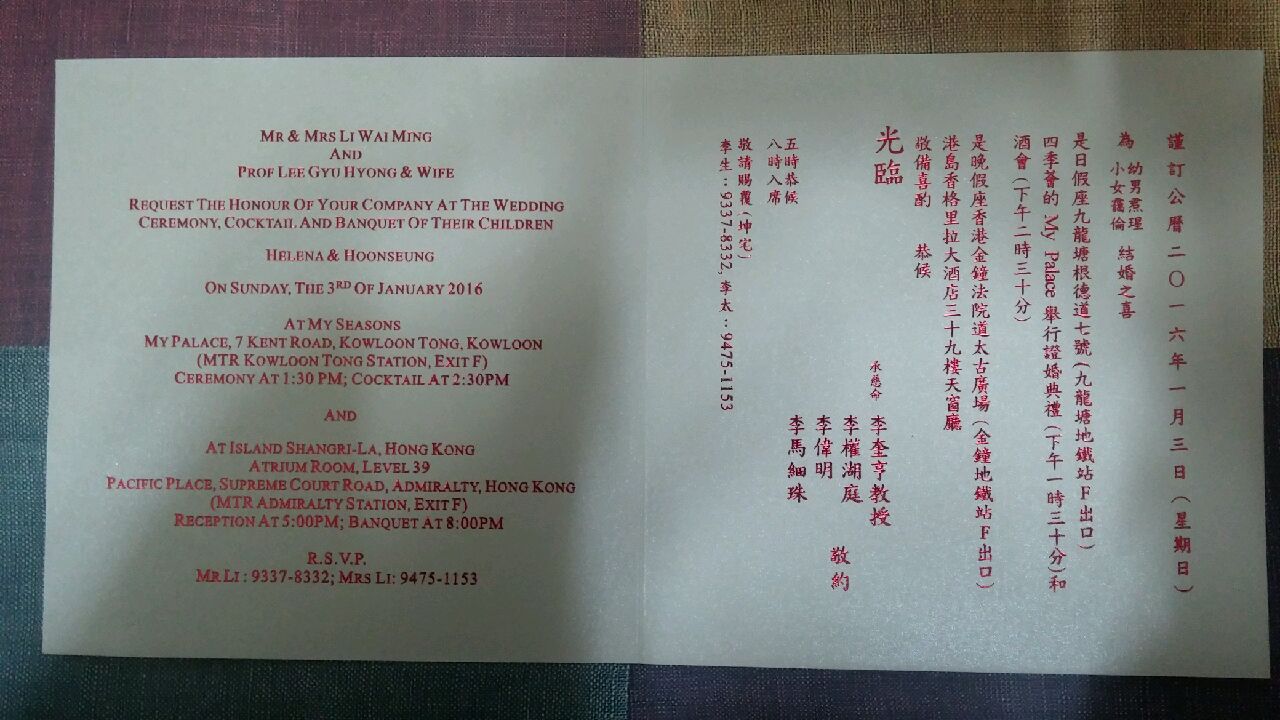 MR & MRS LI WAI MING
AND
PROF LEE GYU HYONG & WIFE
REQUEST THE HONOUR OF YOUR COMPANY AT THE WEDDING
CEREMONY, COCKTAIL AND BANQUET OF THEIR CHILDREN
HELENA & HOONSEUNG
ON SUNDAY, THE 3RD OF JANUARY 2016
AT MY SEASONS
MY PALACE, 7 KENT ROAD, KOWLOON TONG, KOWLOON
(MTR KOWLOON TONG STATION, EXIT F)
CEREMONY AT 1:30 PM; COCKTAIL AT 2:30PM
AND
AT ISLAND SHANGRI-LA, HONG KONG
ATRIUM ROOM, LEVEL 39
PACIFIC PLACE, SUPREME COURT ROAD, ADMIRALTY, HONG KONG
(MTR ADMIRALTY STATION, EXIT F)
RECEPTION AT 5:00PM; BANQUET AT 8:00PM
R.S.V.P.
MR LI : 9337-8332; MRS LI: 9475-1153
謹訂公曆二〇一六年一月三日(星期日)
為
幼男
小女
結婚之喜
是日假座九龍塘根德道七號(九龍塘地鐵站F出口)
四季薈的 My Palace 舉行證婚典禮(下午一時三十分)和
酒會(下午二時三十分)
是晚假座香港金鐘法院道太古廣場(金鐘地鐵站F出口)
港島香格里拉大酒店三十九樓天窗廳
敬備喜酌 恭候
光臨
承慈命
李奎亨教授
李權湖庭
李偉明
李馬細珠
敬約
五時恭候
八時入席
敬請賜覆(坤宅)
李生:9337-8332, 李太:9475-1153